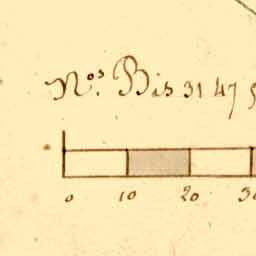 Nos. Bis 31 47 5
0 10 20 30